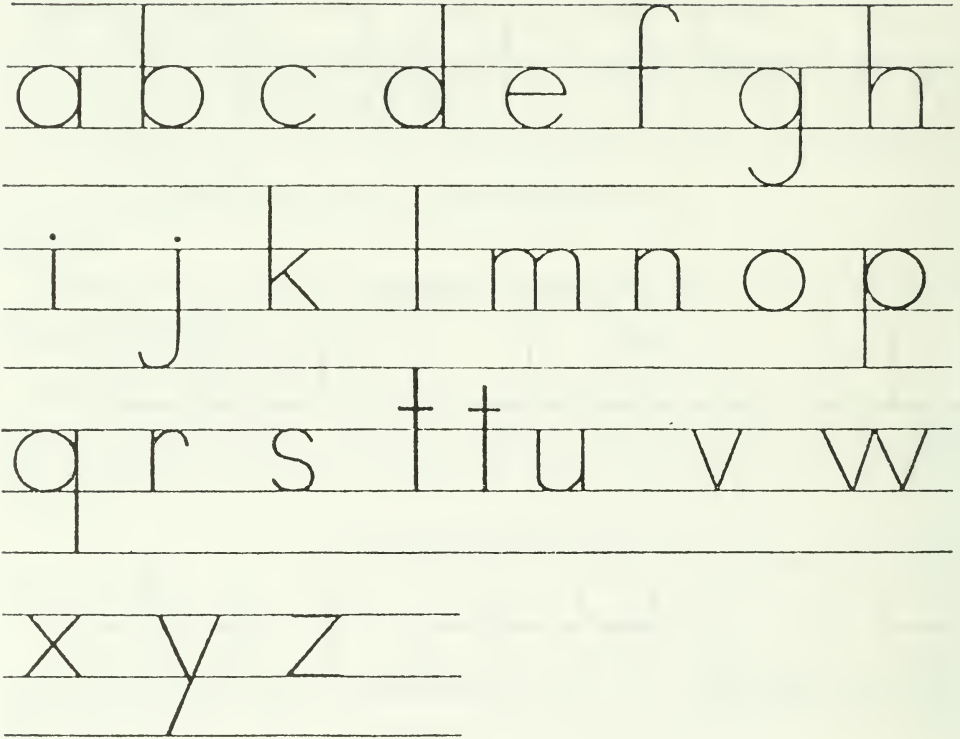 a b c d e f g h
i j k l m n o p
q r s t t u v w
x y z